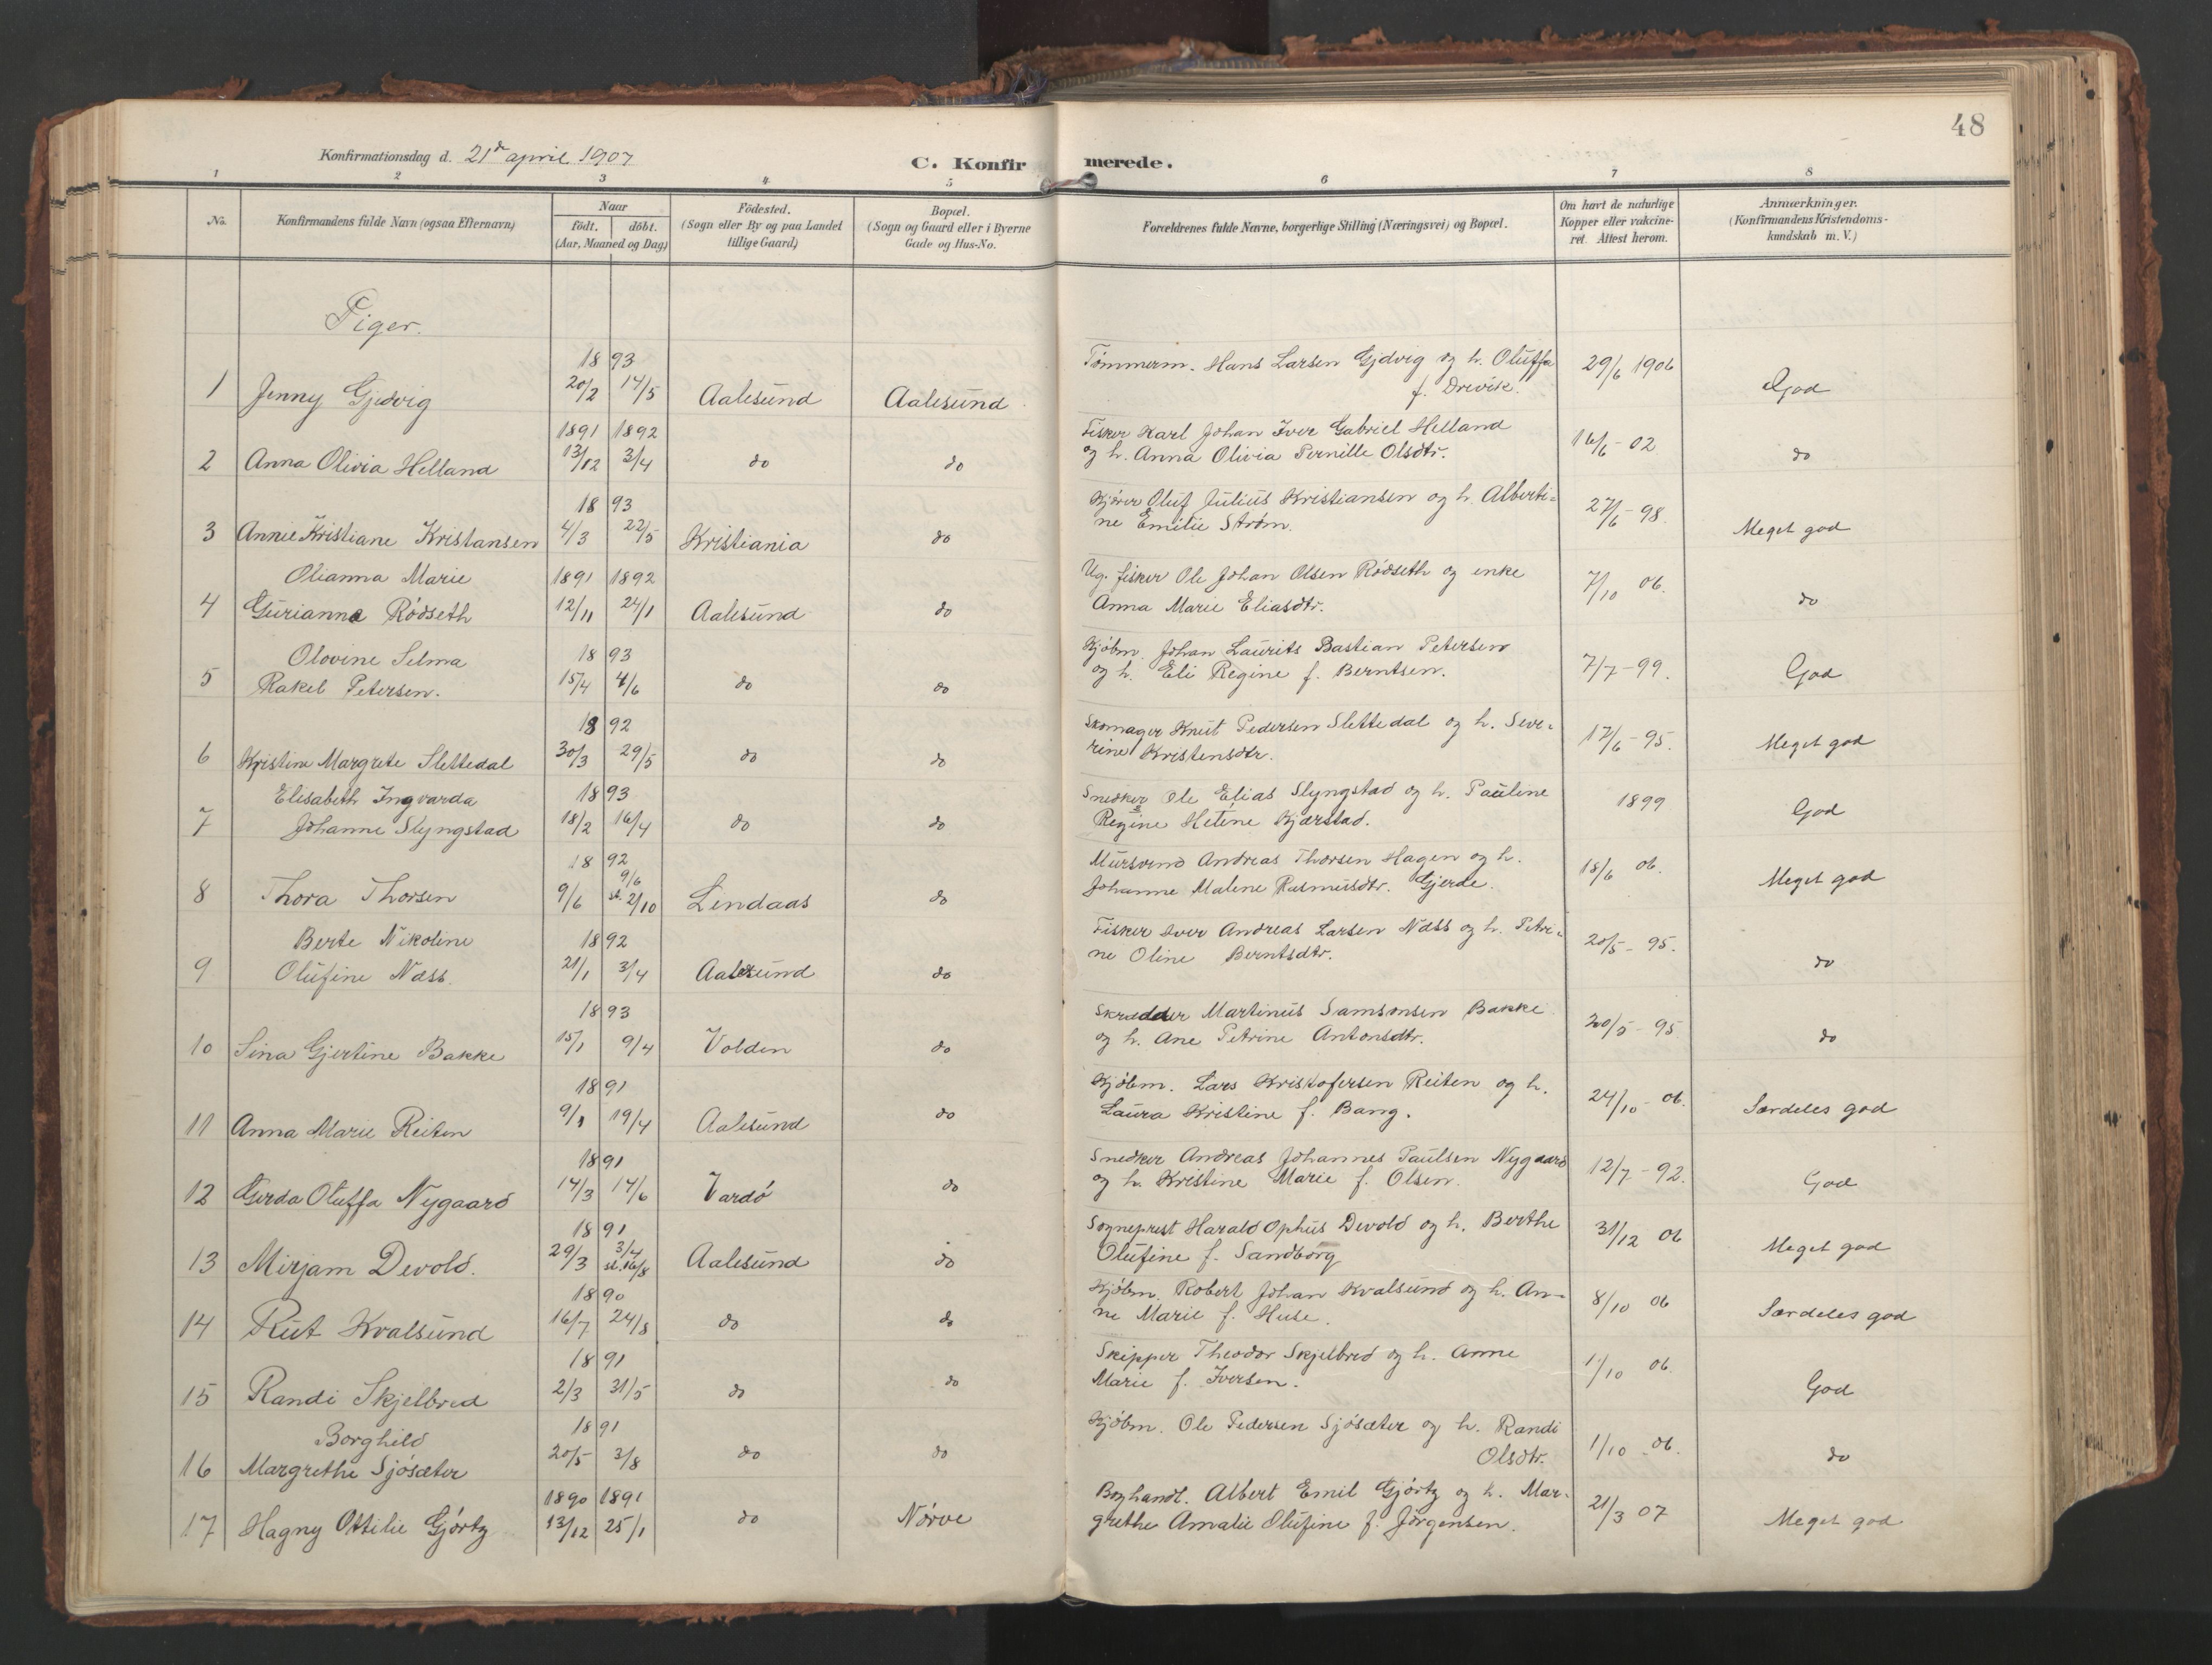 48
Konfirmationsdag d. 21de april 1907
C. Konfirmerede.
1 2 3 4 5 6 7 8
No. Konfirmandens fulde Navn (ogsaa Efternavn) Naar født. døbt. (Aar, Maaned og Dag) Fødested. (Sogn eller By og paa Landet tillige Gaard) Bopæl. (Sogn og Gaard eller i Byerne Gade og Hus-No. Forældrenes fulde Navne, borgerlige Stilling (Næringsvei) og Bopæl. Om havt de naturlige Kopper eller vakcineret. Attest herom. Anmærkninger. (Konfirmandens Kristendomskundskab m. V.)
Piger.
1893
1 Jenny Gjedvig 20/2 14/5 Aalesund Aalesund Tømmerm. Hans Larsen Gjedvig og h. Oluffa 29/6 1906 God
f. Drevik.
1891 1892
2 Anna Olivia Helland 13/12 3/4 do do Fisker Karl Johan Iver Gabriel Helland 16/6-02 do
og h. Anna Olivia Pernille Olsdtr.
1893
3 Annie Kristiane Kristansen 4/3 22/5 Kristiania do Kjører Oluf Julius Kristiansen og h. Alberti- 27/6-98 Meget god
ne Emilie Strøm.
Olianna Marie 1891 1892
4 Gurianna Rødseth 12/11 24/1 Aalesund do Ug. fisker Ole Johan Olsen Rødseth og enke 7/10 06. do
Anna Marie Eliasdtr.
Olovine Selma 1893
5 Rakel Petersen. 15/4 4/6 do do Kjøbm. Johan Laurits Bastian Petersen 7/7-99. God
og h. Eli Regine f. Berntsen.
1892
6 Kristine Margrete Slettedal 30/3 29/5 do do Skomager Knut Pedersen Slettedal og h. Seve- 17/6-95. Meget god
rine Kristensdtr.
Elisabeth Ingvarda 1893
7 Johanne Slyngstad 18/2 16/4 do do Snedker Ole Elias Slyngstad og h. Pauline 1899 God
Regine Helene Kjærstad.
1892
9/6
8 Thora Thorsen 9/6 st. 2/10 Lindaas do Mursvend Andreas Thorsen Hagen og h. 18/6 06. Meget god
Johanne Malene Rasmusdtr. Gjerde.
Berte Nikoline 1892
9 Olufine Næss. 21/1 3/4 Aalesund do Fisker Iver Andreas Larsen Næss og h. Petri- 20/5-95. do
ne Oline Berntsdtr.
1893
10 Sina Gjertine Bakke 15/1 9/4 Volden do Skrædder Martinus Samsonsen Bakke 20/5-95 do
og h. Ane Petrine Antonsdtr.
1891
11 Anna Marie Reiten 9/1 19/4 Aalesund do Kjøbm. Lars Kristofersen Reiten og h. 24/10-06. Særdeles god
Laura Kristine f. Bang.
1891
12 Gerda Oluffa Nygaard 14/3 14/6 Vardø do Snedker Andreas Johannes Paulsen Nygaard 12/7-92. God
og h. Kristine Marie f. Olsen.
1891
3/4
13 Mirjam Devold. 29/3 st. 16/8 Aalesund do Sogneprest Harald Ophus Devold og h. Berthe 31/12 06 Meget god
Olufine f. Sandborg
1890
14 Rut Kvalsund 16/7 24/8 do do Kjøbm. Robert Johan Kvalsund og h. An- 8/10 06 Særdeles god
ne Marie f. Huse.
1891
15 Randi Skjelbred 2/3 31/5 do do Skipper Theodor Skjelbred og h. Anne 1/10 06. God
Marie f. Iversen.
Borghild 1891
16 Margrethe Sjøsæter 20/5 3/8 do do Kjøbm. Ole Pedersen Sjøsæter og h. Randi 1/10-06. do
Olsdtr.
1890 1891
17 Hagny Ottilie Gjørtz 13/12 25/1 do Nørve Boghandl. Albert Emil Gjørtz og h. Mar- 21/3 07 Meget god
grethe Amalie Olufine f. Jørgensen.